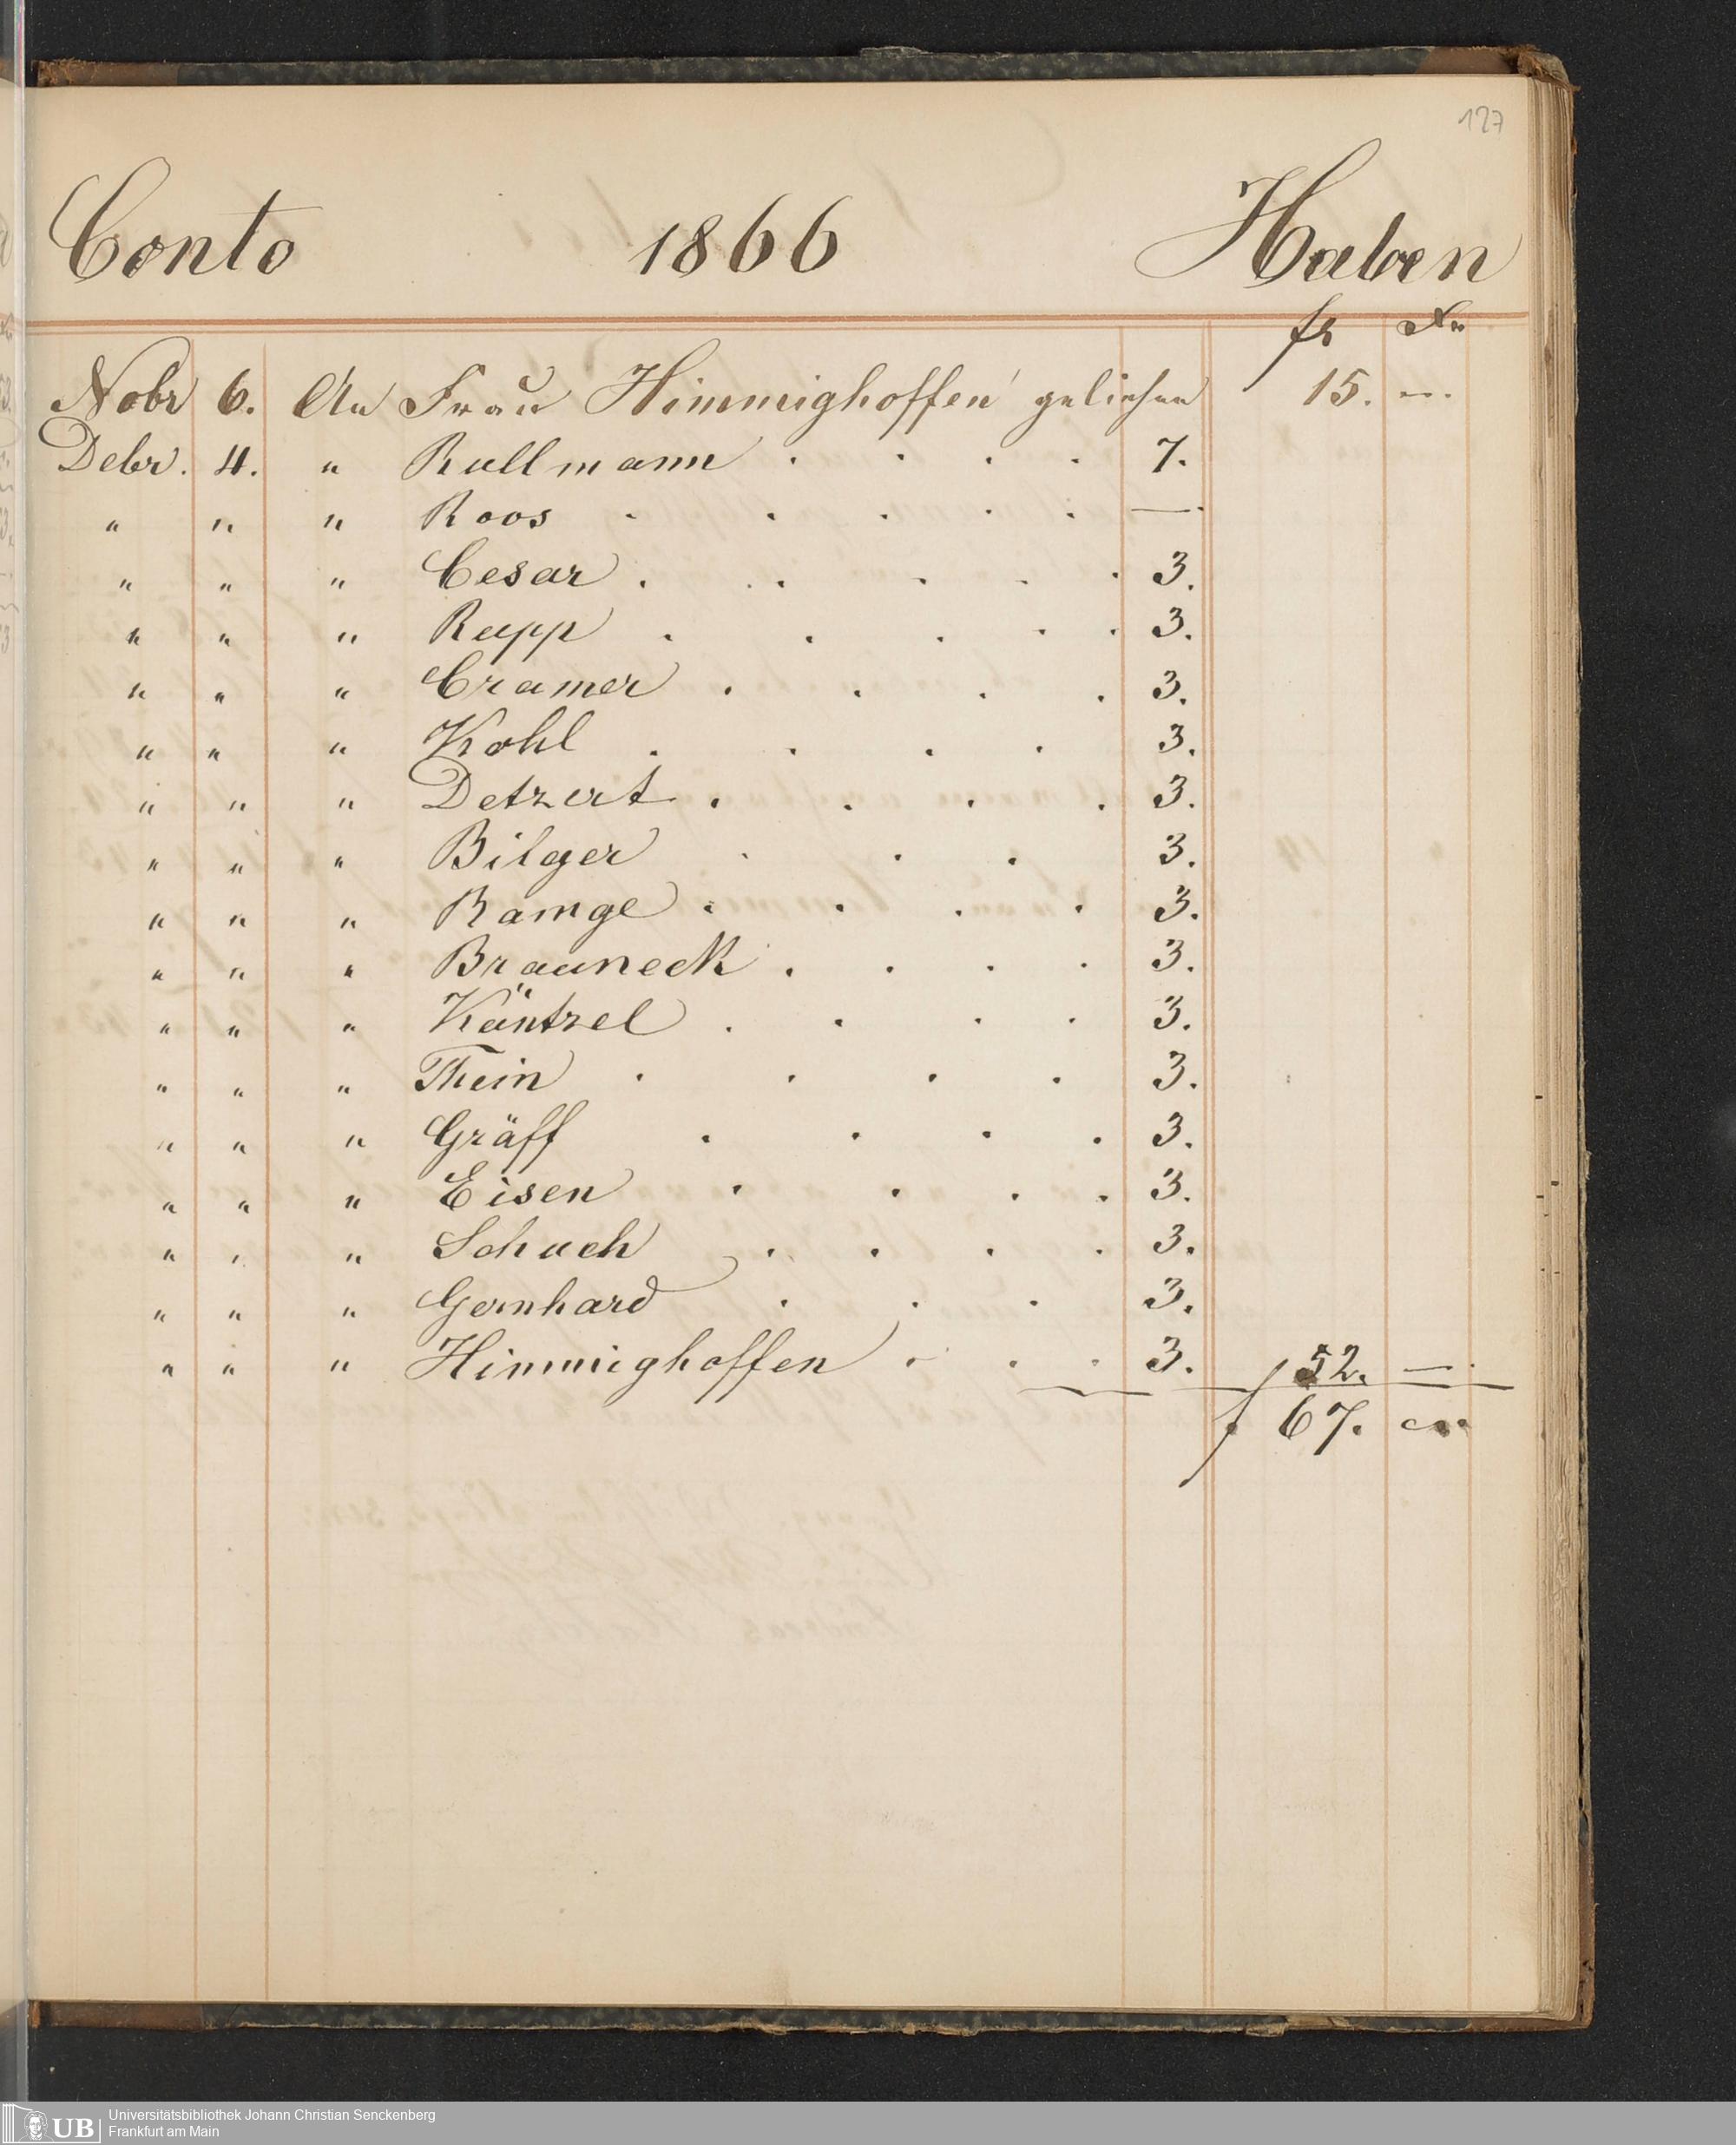 127
Conto 1866 Haben
fr Xr
Nobr 6. An Frau Himmighoffen geliehen 15. "
Debr. 4. " Rullmann . . . . 7.
" " " Roos . . . . . —.
" " " Cesar . . . . . 3.
" " " Rupp . . . . . 3.
" " " Cramer . . . . 3.
" " " Kohl . . . . 3.
" " " Detzert . . . . 3.
" " " Bilger . . . 3.
" " " Ramge . . . . 3.
" " " Brauneck . . . . 3.
" " " Käntzel . . . . 3.
" " " Thein . . . . 3.
" " " Gräff . . . . 3.
" " " Eisen . . . . 3.
" " " Schuch . . . . 3.
" " " Gernhard . . . 3.
" " " Himmighoffen . . . 3. 52. —.
f 67. "
Universitätsbibliothek Johann Christian Senckenberg
Frankfurt am Main
UB